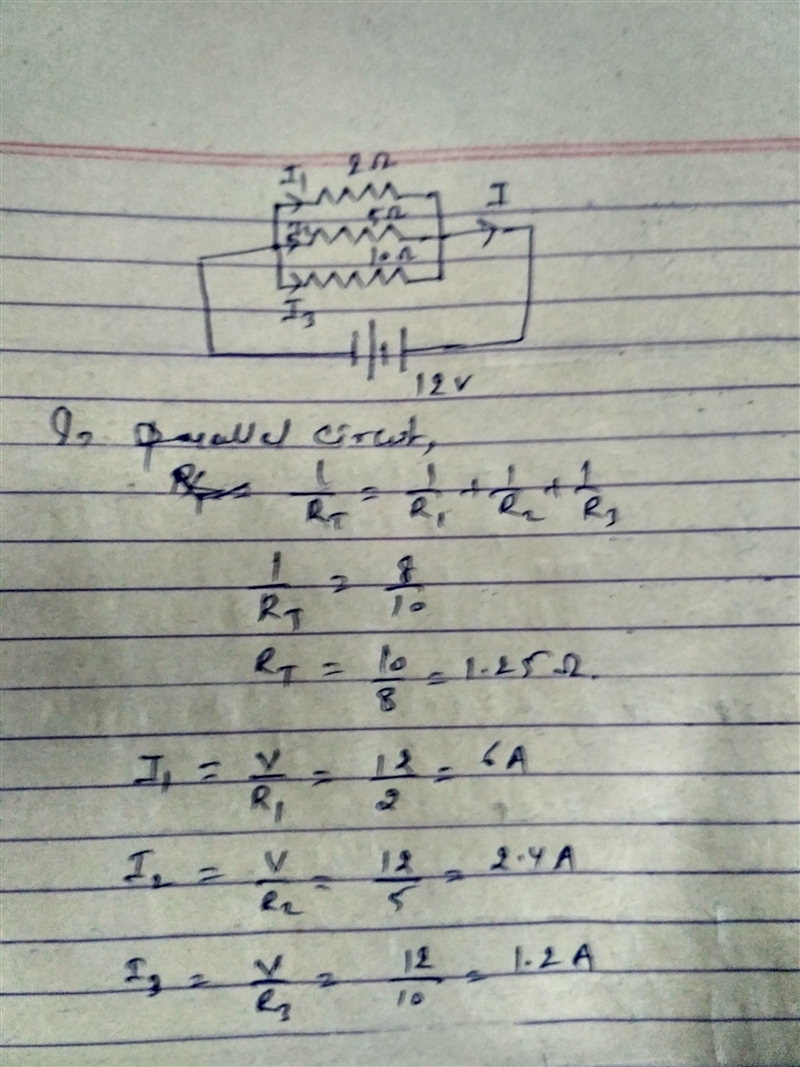 2Ω
I₁
I
5Ω
I₂
10Ω
I₃
12V
In parallel circuit,
1/R_T = 1/R₁ + 1/R₂ + 1/R₃
1/R_T = 8/10
R_T = 10/8 = 1.25Ω.
I₁ = V/R₁ = 12/2 = 6A
I₂ = V/R₂ = 12/5 = 2.4A
I₃ = V/R₃ = 12/10 = 1.2A